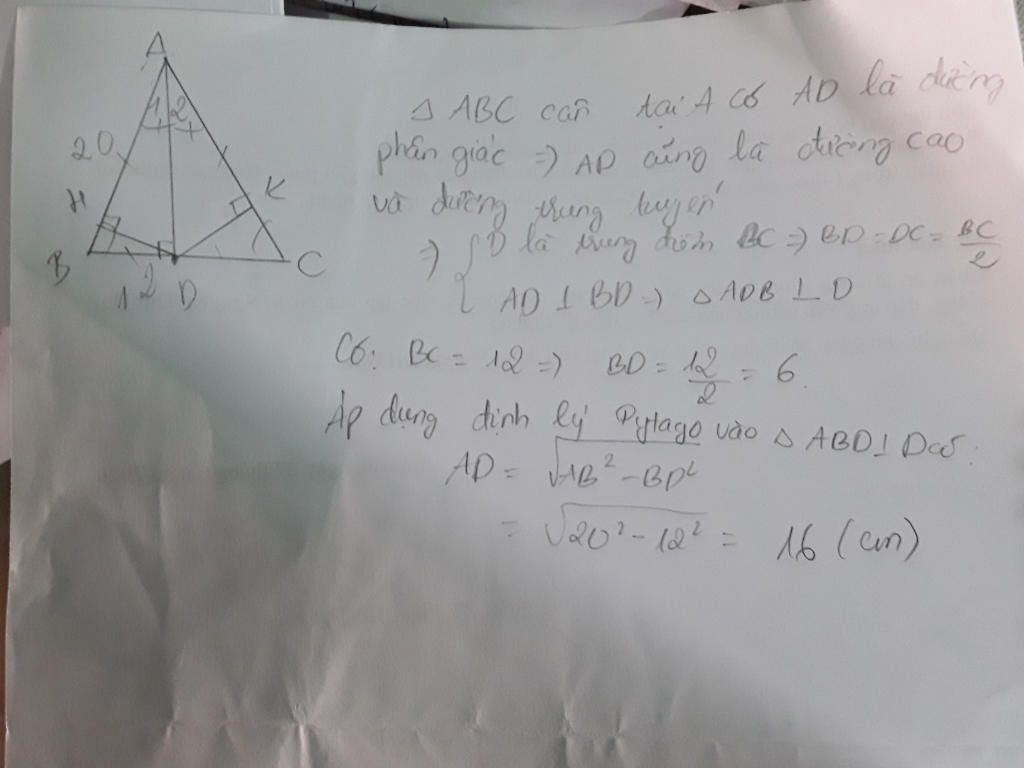 A
1 2
20
H
K
B
C
1 2 D
Δ ABC cân tại A có AD là đường
phân giác => AD cũng là đường cao
và đường trung tuyến
=> { D là trung điểm BC => BD = DC = BC/2
AD ⊥ BD => Δ ADB ⊥ D
Có: BC = 12 => BD = 12/2 = 6.
Áp dụng định lý Pytago vào Δ ABD ⊥ D có:
AD = √(AB² - BD²)
= √(20² - 12²) = 16 (cm)